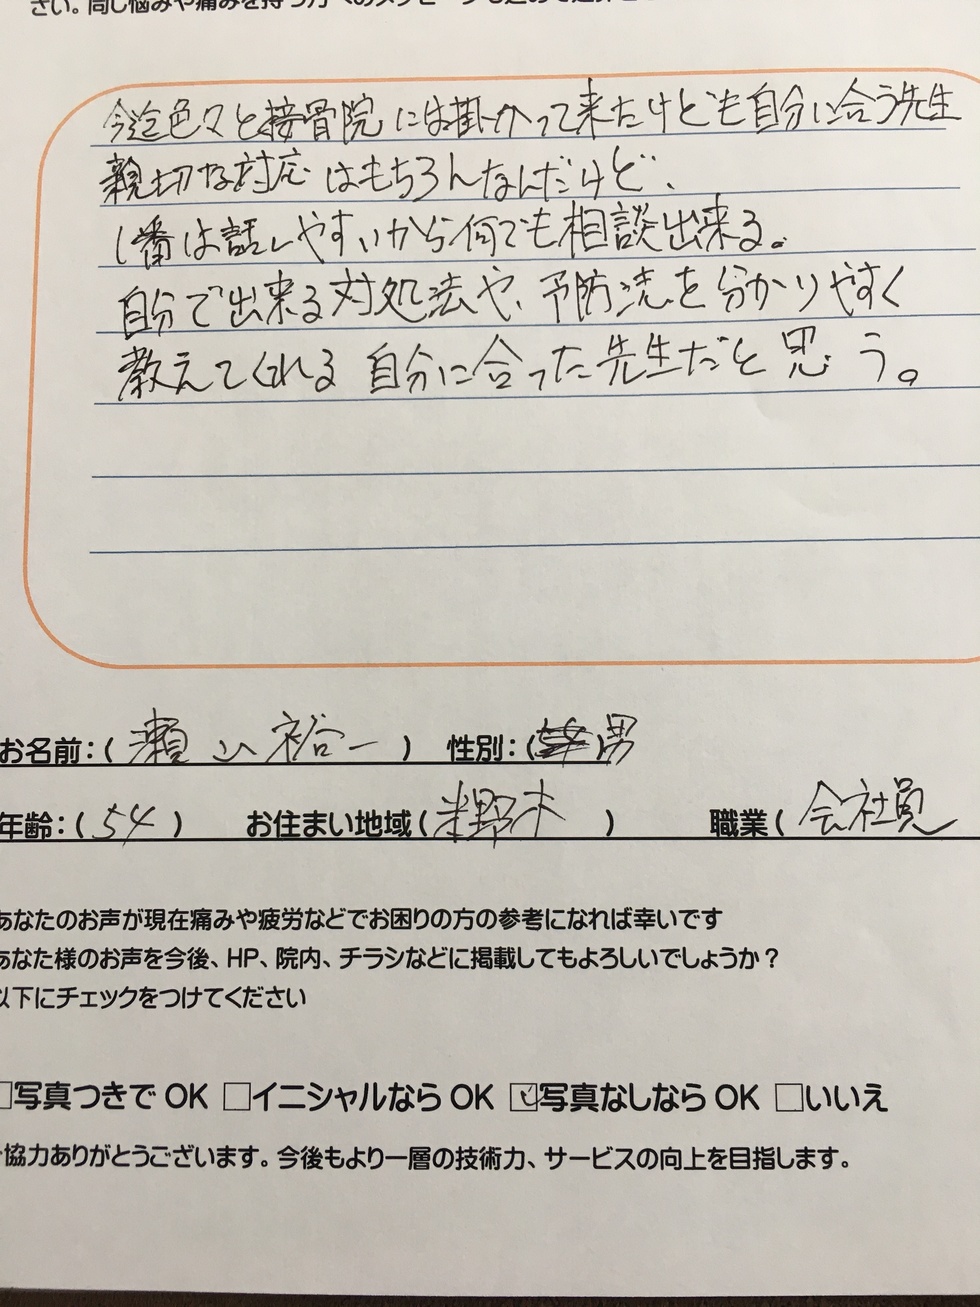 さい。同じ悩みや痛みを持つ方へのメッセージも
今迄色々と接骨院には掛かって来たけども自分に合う先生
親切な対応はもちろんなんだけど、
1番は話しやすいから何でも相談出来る。
自分で出来る対処法や、予防法を分かりやすく
教えてくれる自分に合った先生だと思う。
お名前：( 瀬山裕一 ) 性別：( )男
年齢：( 54 ) お住まい地域( 米野木 ) 職業( 会社員
あなたのお声が現在痛みや疲労などでお困りの方の参考になれば幸いです
あなた様のお声を今後、HP、院内、チラシなどに掲載してもよろしいでしょうか？
以下にチェックをつけてください
□写真つきで OK □イニシャルなら OK ☑写真なしなら OK □いいえ
協力ありがとうございます。今後もより一層の技術力、サービスの向上を目指します。